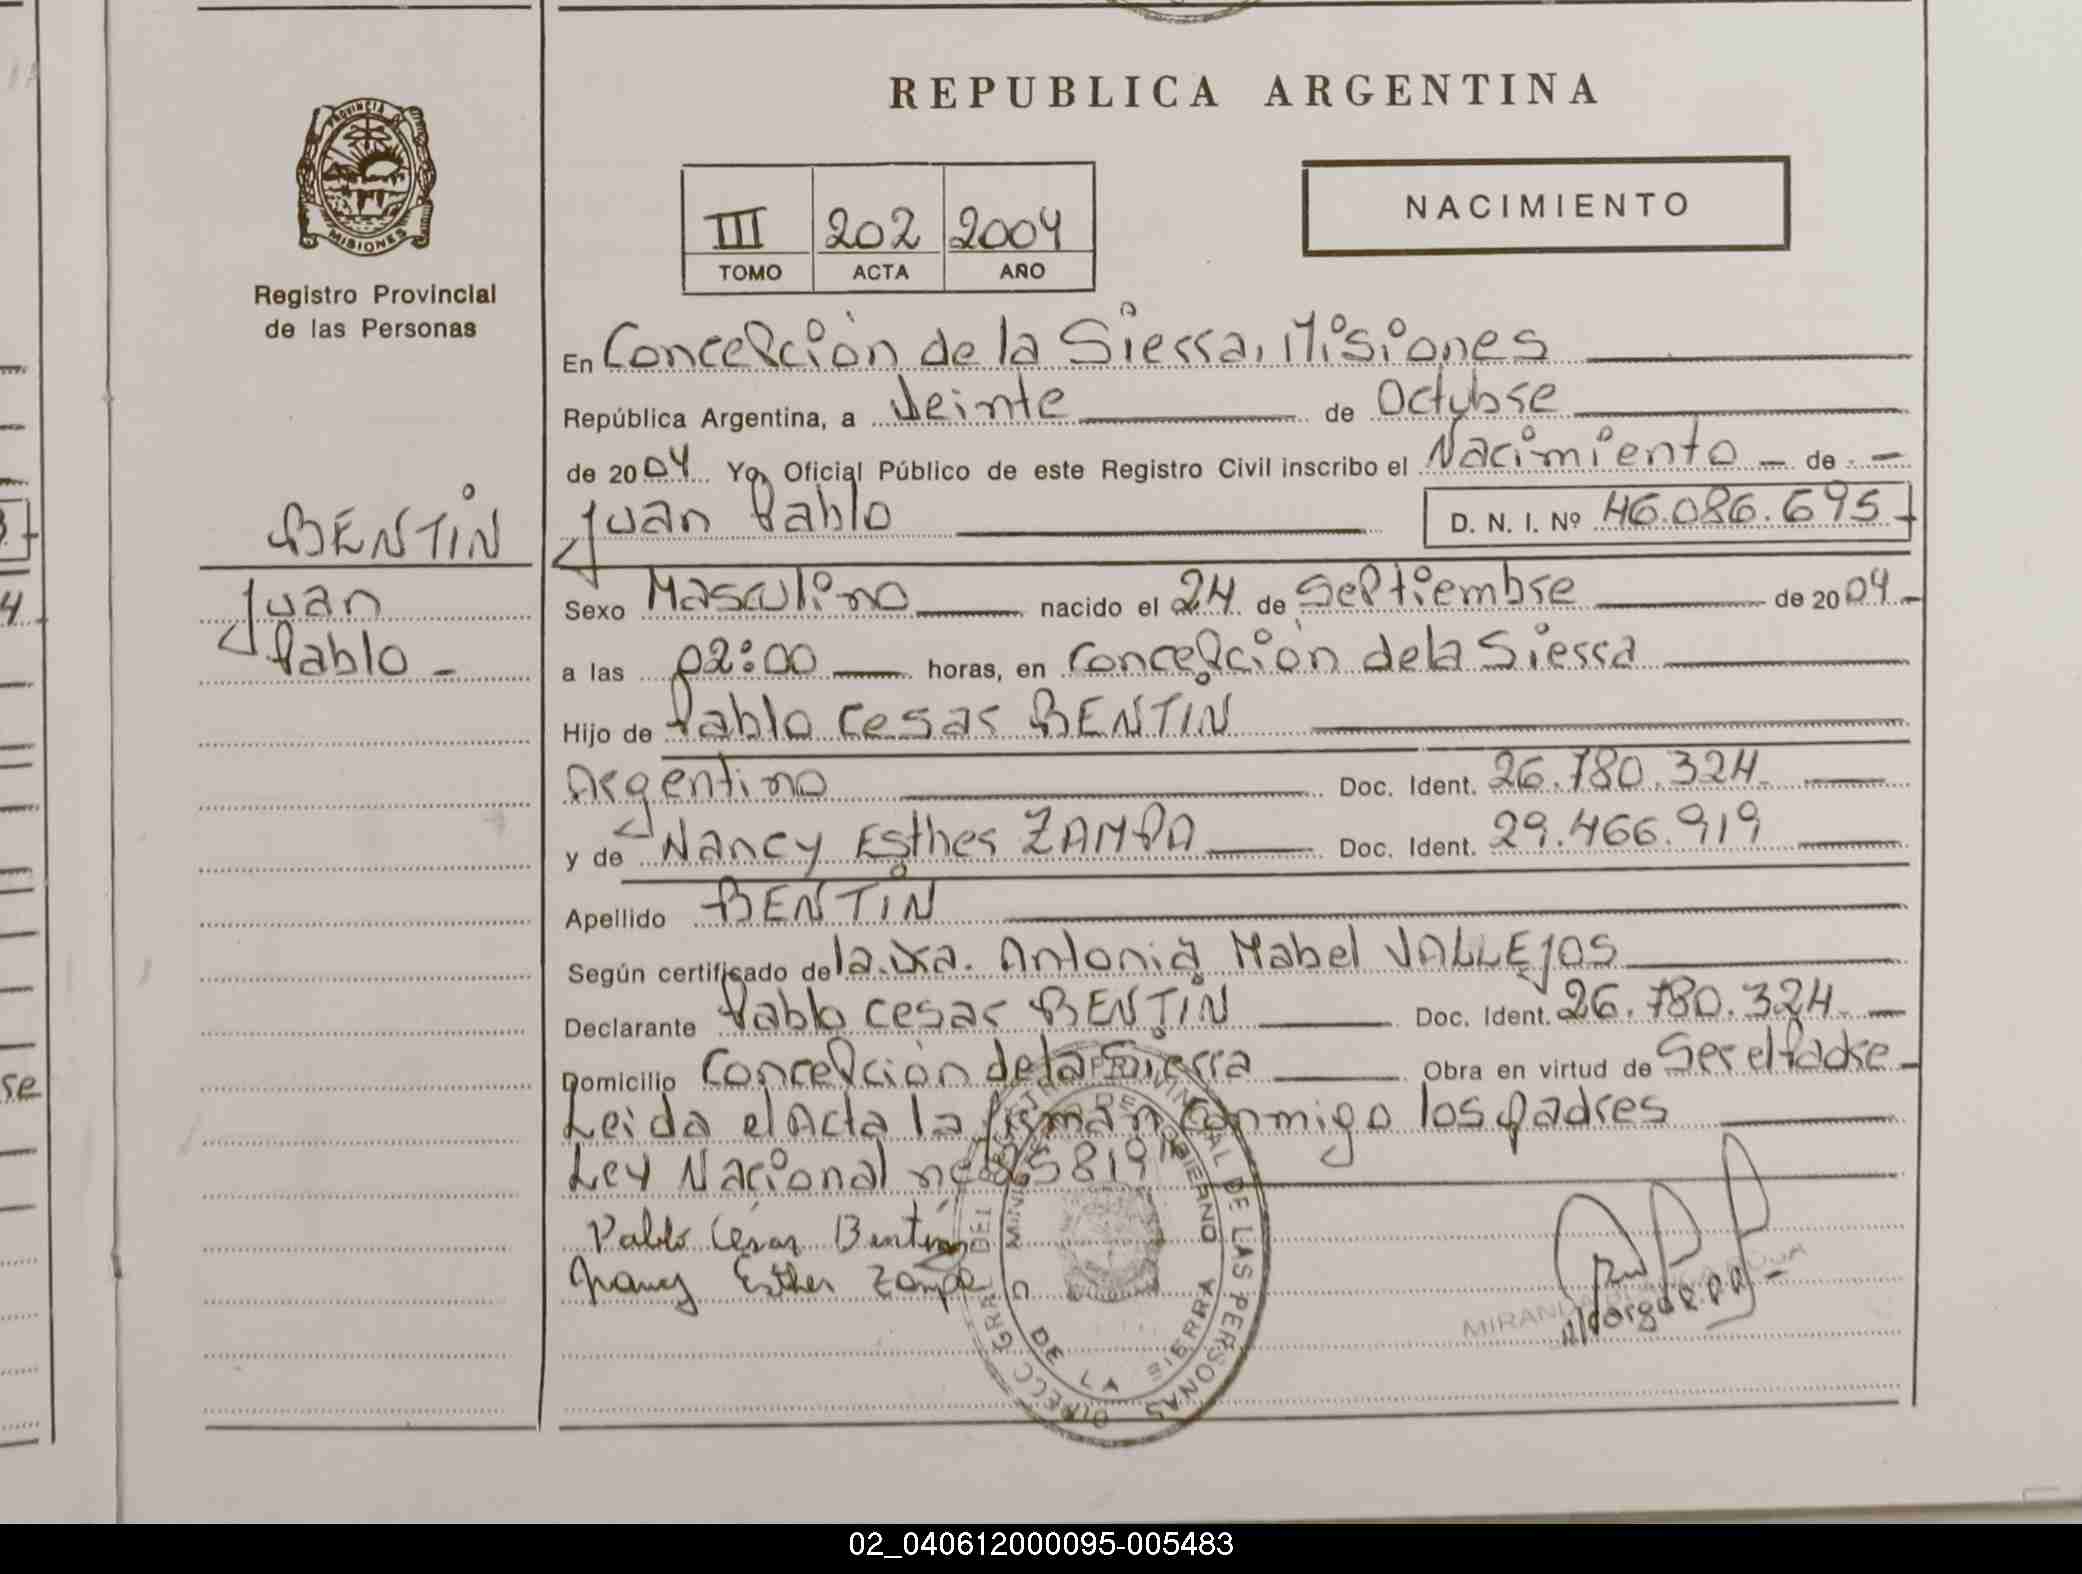 REPUBLICA ARGENTINA
PROVINCIA DE
MISIONES
Registro Provincial
de las Personas
III 202 2004
TOMO ACTA AÑO
NACIMIENTO
En Concepción de la Sierra, Misiones
República Argentina, a Veinte de Octubre
de 2004 Yo, Oficial Público de este Registro Civil inscribo el Nacimiento - de -
BENTÍN
Juan
Pablo -
Juan Pablo D. N. I. Nº 46.086.695
Sexo Masculino nacido el 24 de Septiembre de 2004
a las 02:00 horas, en Concepción de la Sierra
Hijo de Pablo Cesar BENTÍN
Argentino Doc. Ident. 26.780.324
y de Nancy Esther ZAMPA Doc. Ident. 29.466.919
Apellido BENTÍN
Según certificado de la Dra. Antonia Mabel VALLEJOS
Declarante Pablo Cesar BENTÍN Doc. Ident. 26.780.324
Domicilio Concepción de la Sierra Obra en virtud de Ser el Padre
Leida el Acta la firman conmigo los padres
Ley Nacional nº 25819"
Pablo César Bentín
Nancy Esther Zampa
DIRECC. GRAL. DEL REGISTRO PROVINCIAL DE LAS PERSONAS
DE GOBIERNO
DE LA SIERRA
02_040612000095-005483